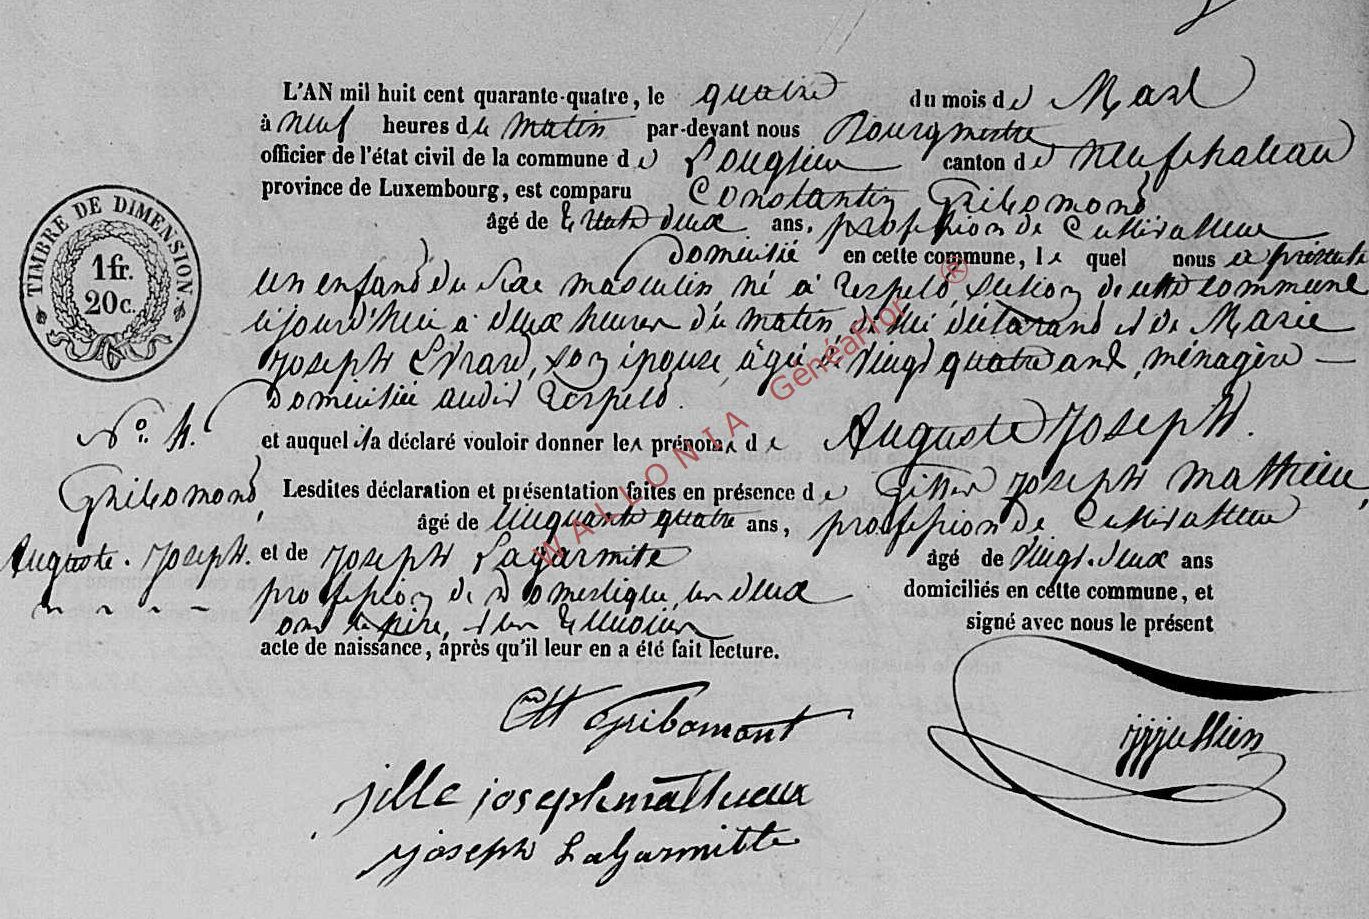 L'AN mil huit cent quarante-quatre, le quatre du mois de Mars
à neuf heures de matin par-devant nous Bourgmestre
officier de l'état civil de la commune de Longlier canton de Neufchateau
province de Luxembourg, est comparu Constantin Gribomond,
âgé de trente deux ans, profession de Cultivateur
Domicilié en cette commune, le quel nous a présenté
un enfand du sexe masculin, né à Respeld, section de cette commune
aujourd'hui à deux heures du matin, de lui déclarand et de Marie
Joseph Evrard, son épouse, âgée de vingt quatre ans, ménagère —
Domiciliée audit Respeld.
et auquel il a déclaré vouloir donner les prénoms de Auguste Joseph.
N° 4.
Gribomond,
Auguste. Joseph.
Lesdites déclaration et présentation faites en présence de Joseph Mathieu,
âgé de cinquante quatre ans, profession de Cultivateur
et de Joseph Lagarmite âgé de vingt-deux ans
profession de Domestique, les deux domiciliés en cette commune, et
ont le père, et les témoins signé avec nous le présent
acte de naissance, après qu'il leur en a été fait lecture.
Ctt Gribomont
jille joseph mathieux
joseph Lagarmitte
TIMBRE DE DIMENSION.
1 fr.
20 c.
WALLONIA GénéaFlor ®